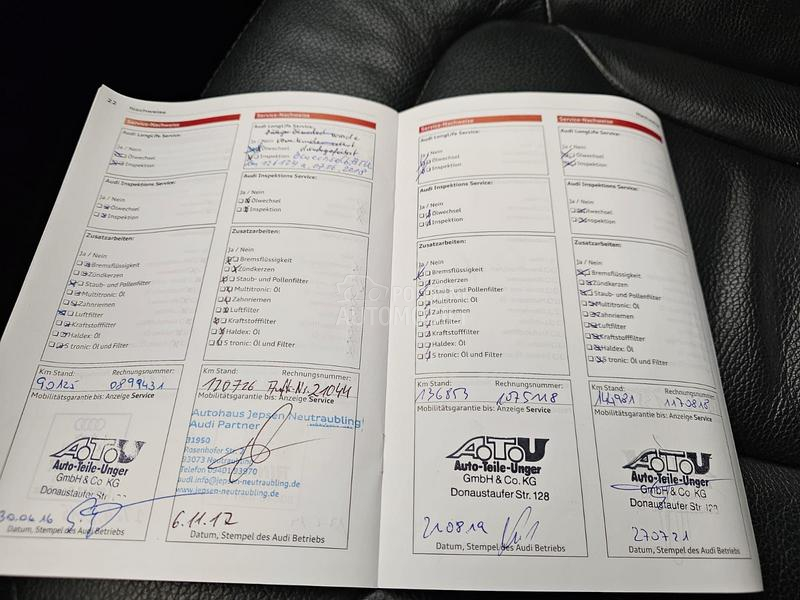 22
Nachweise
Service-Nachweise
Audi LongLife Service:
Ja / Nein
Ölwechsel
Inspektion
Audi Inspektions Service:
Ja / Nein
Ölwechsel
Inspektion
Zusatzarbeiten:
Ja / Nein
Bremsflüssigkeit
Zündkerzen
Staub- und Pollenfilter
Multitronic: Öl
Zahnriemen
Luftfilter
Kraftstofffilter
Haldex: Öl
S tronic: Öl und Filter
Km Stand: Rechnungsnummer:
90125 0899431
Mobilitätsgarantie bis: Anzeige Service
ATU
Auto-Teile-Unger
GmbH & Co. KG
Donaustaufer Str. 128
30.06.16
Datum, Stempel des Audi Betriebs
Service-Nachweise
Audi LongLife Service:
wurde
Ja / Nein
durchgeführt
Ölwechsel
Inspektion
Audi Inspektions Service:
Ja / Nein
Ölwechsel
Inspektion
Zusatzarbeiten:
Ja / Nein
Bremsflüssigkeit
Zündkerzen
Staub- und Pollenfilter
Multitronic: Öl
Zahnriemen
Luftfilter
Kraftstofffilter
Haldex: Öl
S tronic: Öl und Filter
Km Stand: Rechnungsnummer:
120726 Auft-Nr. 21044
Mobilitätsgarantie bis: Anzeige Service
Autohaus Jepsen Neutraubling
Audi Partner
91950
Rosenhofer Str.
93073 Neutraubling
Telefon 09401 93970
audi.info@jepsen-neutraubling.de
www.jepsen-neutraubling.de
6.11.17
Datum, Stempel des Audi Betriebs
Service-Nachweise
Audi LongLife Service:
Ja / Nein
Ölwechsel
Inspektion
Audi Inspektions Service:
Ja / Nein
Ölwechsel
Inspektion
Zusatzarbeiten:
Ja / Nein
Bremsflüssigkeit
Zündkerzen
Staub- und Pollenfilter
Multitronic: Öl
Zahnriemen
Luftfilter
Kraftstofffilter
Haldex: Öl
S tronic: Öl und Filter
Km Stand: Rechnungsnummer:
136853 1075118
Mobilitätsgarantie bis: Anzeige Service
ATU
Auto-Teile-Unger
GmbH & Co. KG
Donaustaufer Str. 128
210819
Datum, Stempel des Audi Betriebs
Nachweise
Service-Nachweise
Audi LongLife Service:
Ja / Nein
Ölwechsel
Inspektion
Audi Inspektions Service:
Ja / Nein
Ölwechsel
Inspektion
Zusatzarbeiten:
Ja / Nein
Bremsflüssigkeit
Zündkerzen
Staub- und Pollenfilter
Multitronic: Öl
Zahnriemen
Luftfilter
Kraftstofffilter
Haldex: Öl
S tronic: Öl und Filter
Km Stand: Rechnungsnummer:
1170818
Mobilitätsgarantie bis: Anzeige Service
ATU
Auto-Teile-Unger
GmbH & Co. KG
Donaustaufer Str. 128
270721
Datum, Stempel des Audi Betriebs